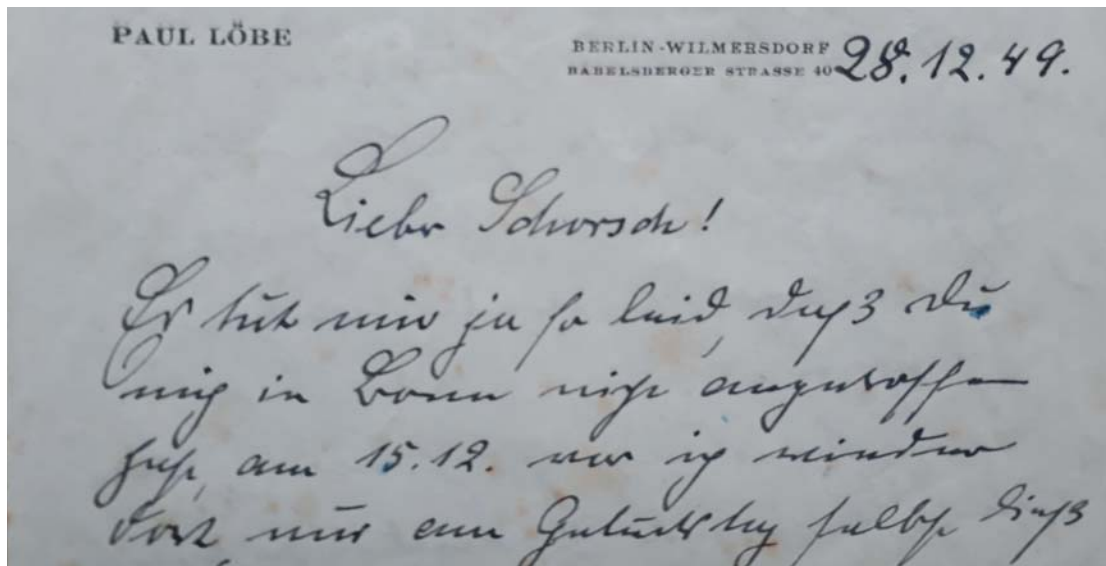 PAUL LÖBE
BERLIN-WILMERSDORF
BABELSBERGER STRASSE 40
28.12.49.
Lieber Schorsch!
Es tut mir ja so leid, daß Du
mich in Bonn nicht angetroffen
hast, am 15.12. war ich wieder
dort nur am Geburtstag selbst ließ